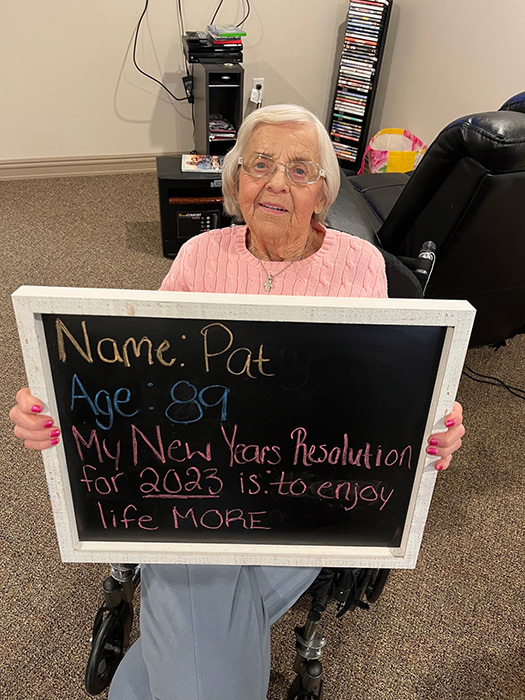 Name: Pat
Age: 89
My New Years Resolution
for 2023 is: to enjoy
life MORE